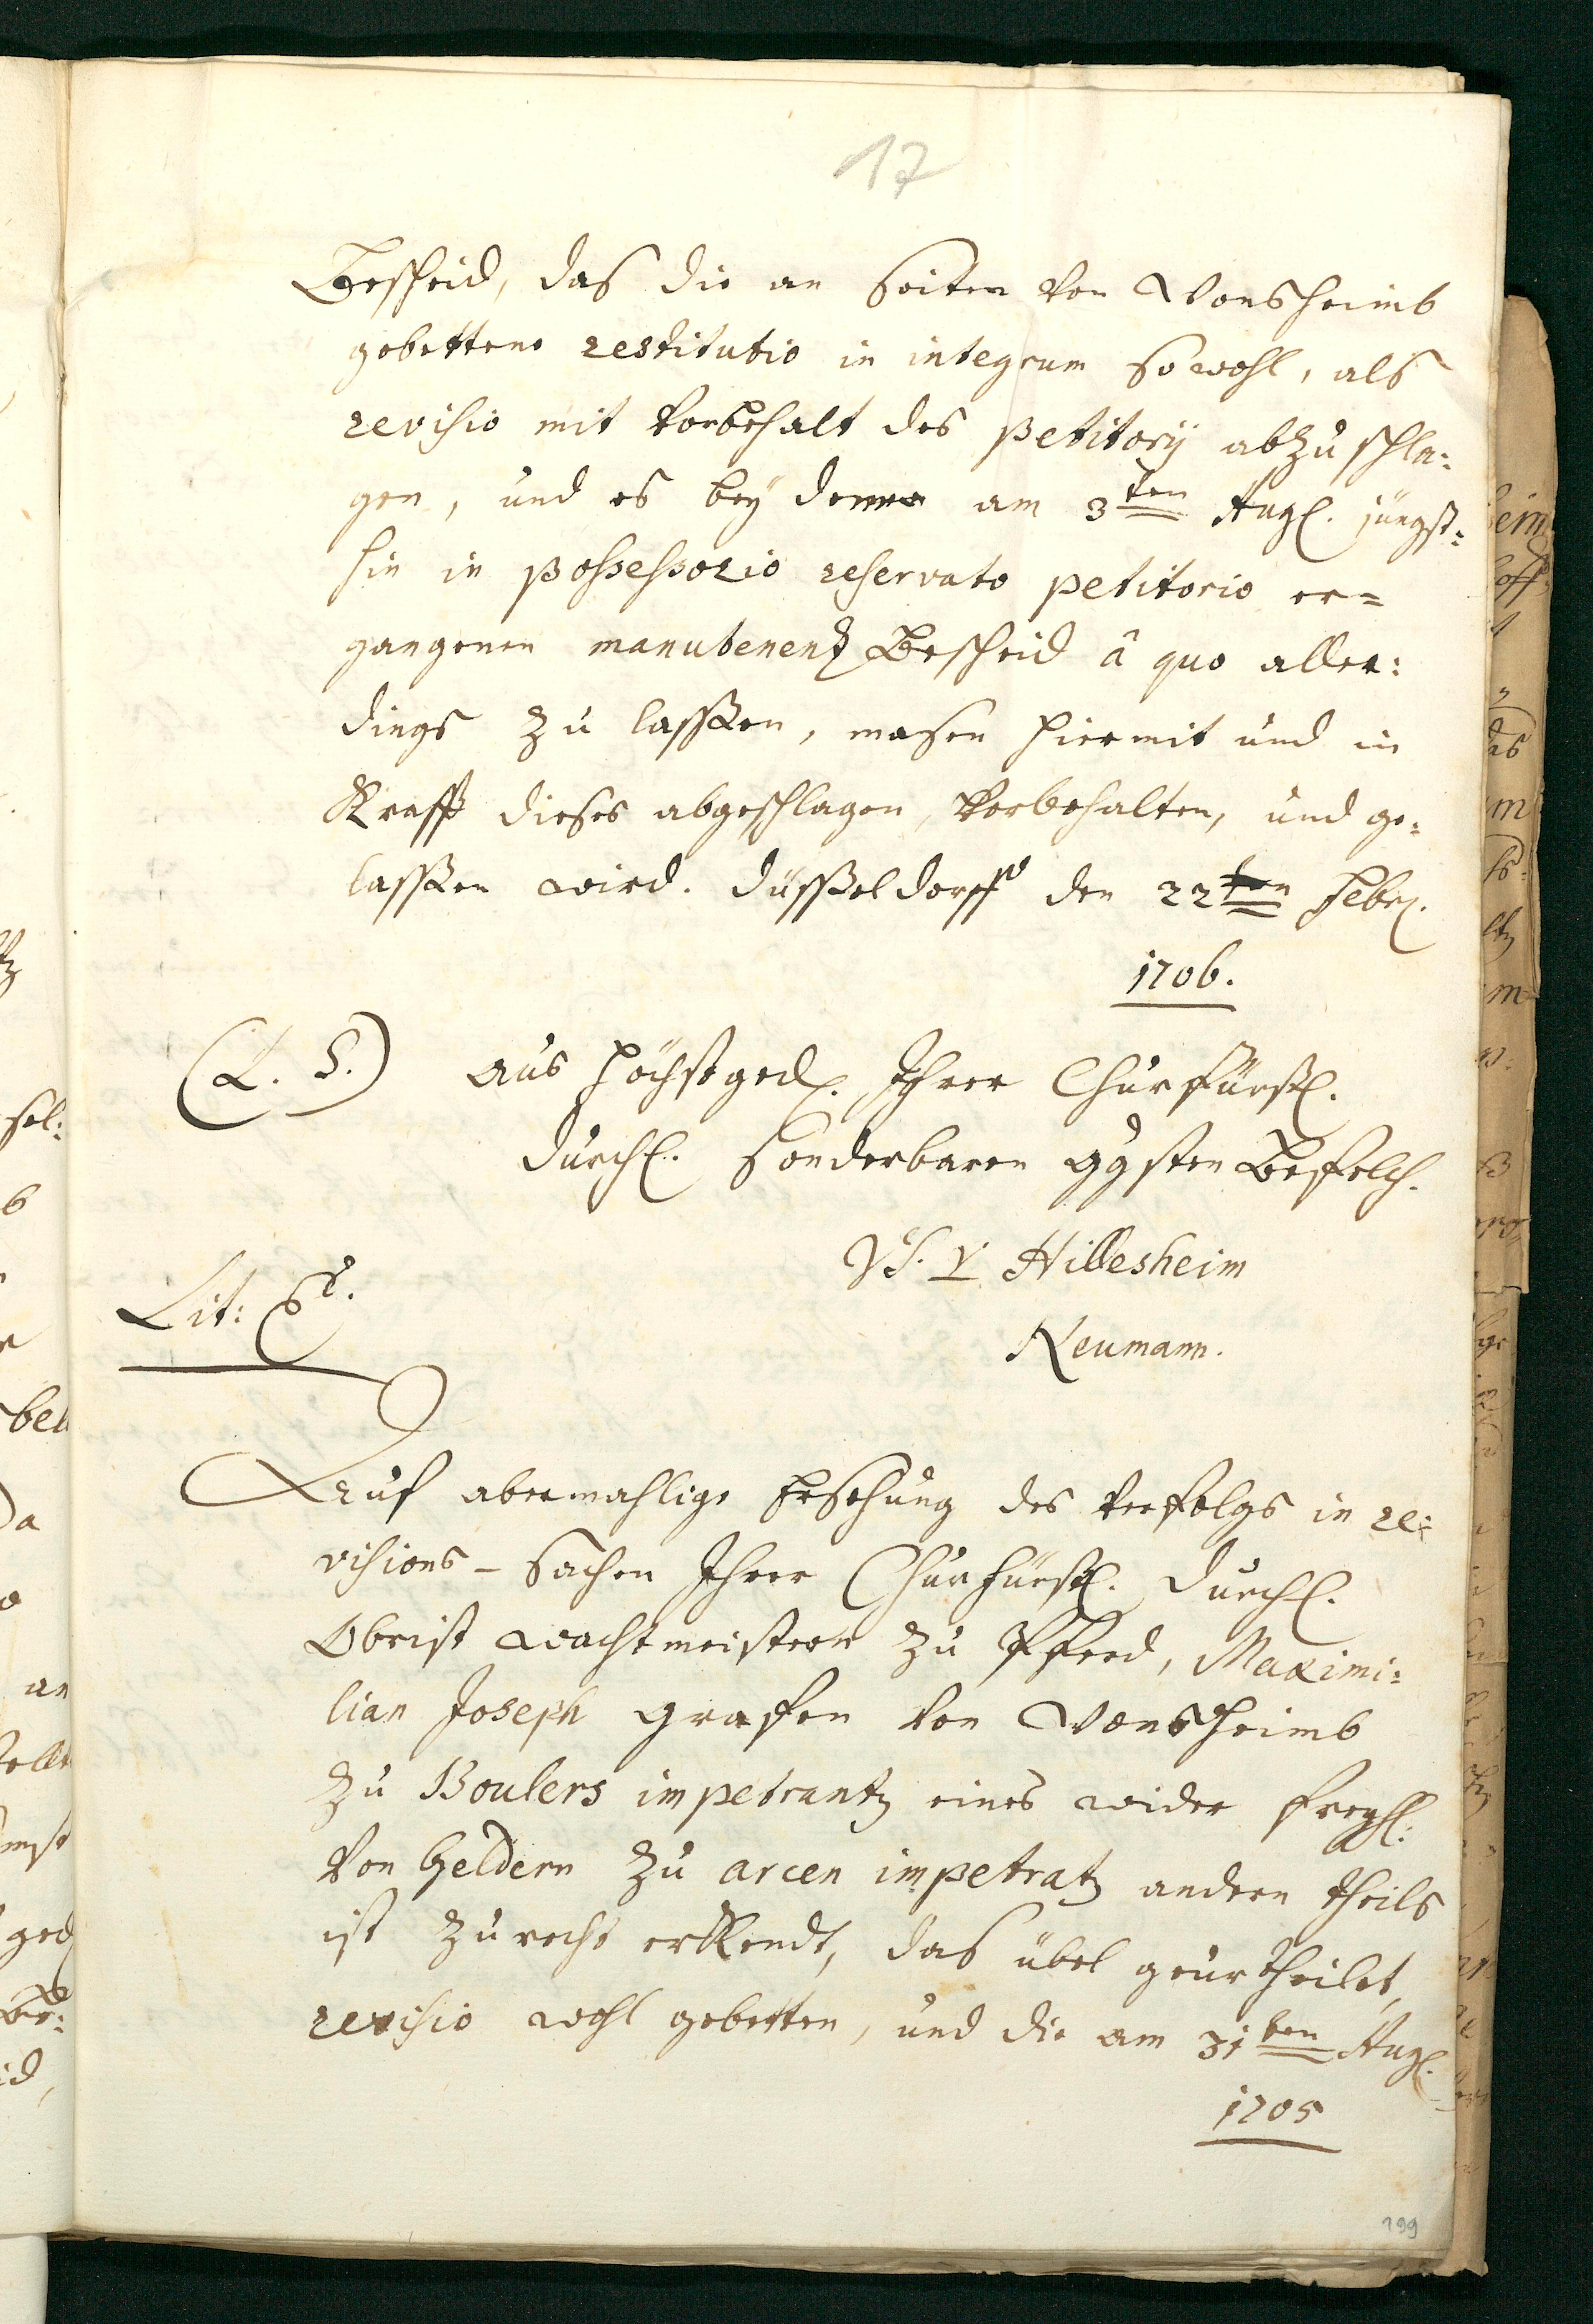 17
Bescheid, das die an seiten von Wonsheimb
gebettene restitutio in integrum so wohl, als
revisio mit vorbehalt des petitorij abzuschla:
gen, und es bey deme am 3ten Augl. jüngst:
hin in possessorio reservato petitorio er=
gangenen manutenentz Bescheid â quo aller:
dings zu lassen, masen hiermit und in
Krafft dieses abgeschlagen, vorbehalten, und ge:
lassen wird. Düsseldorff den 22ten Febr.
1706.
(L. S.) aus höchstged. Ihrer Churfürstl.
Durchl. sonderbaren ggsten Befelch.
Vt. V. Hillesheim
Lit:
Neumann.
Auf abermahlige Ersehung des verfolgs in re:
visions-sachen Ihrer Churfürstl. Durchl.
Obrist wachtmeistern zu Pferd, Maximi:
lian Joseph grafen von Wonsheimb
zu Boulers impetrantz eines wider freyh:
von Geldern zu arcen impetratz andern theils
ist zu recht erkendt, das übel geurtheilet,
revisio wohl gebetten, und die am 31ten Augl.
1705
199